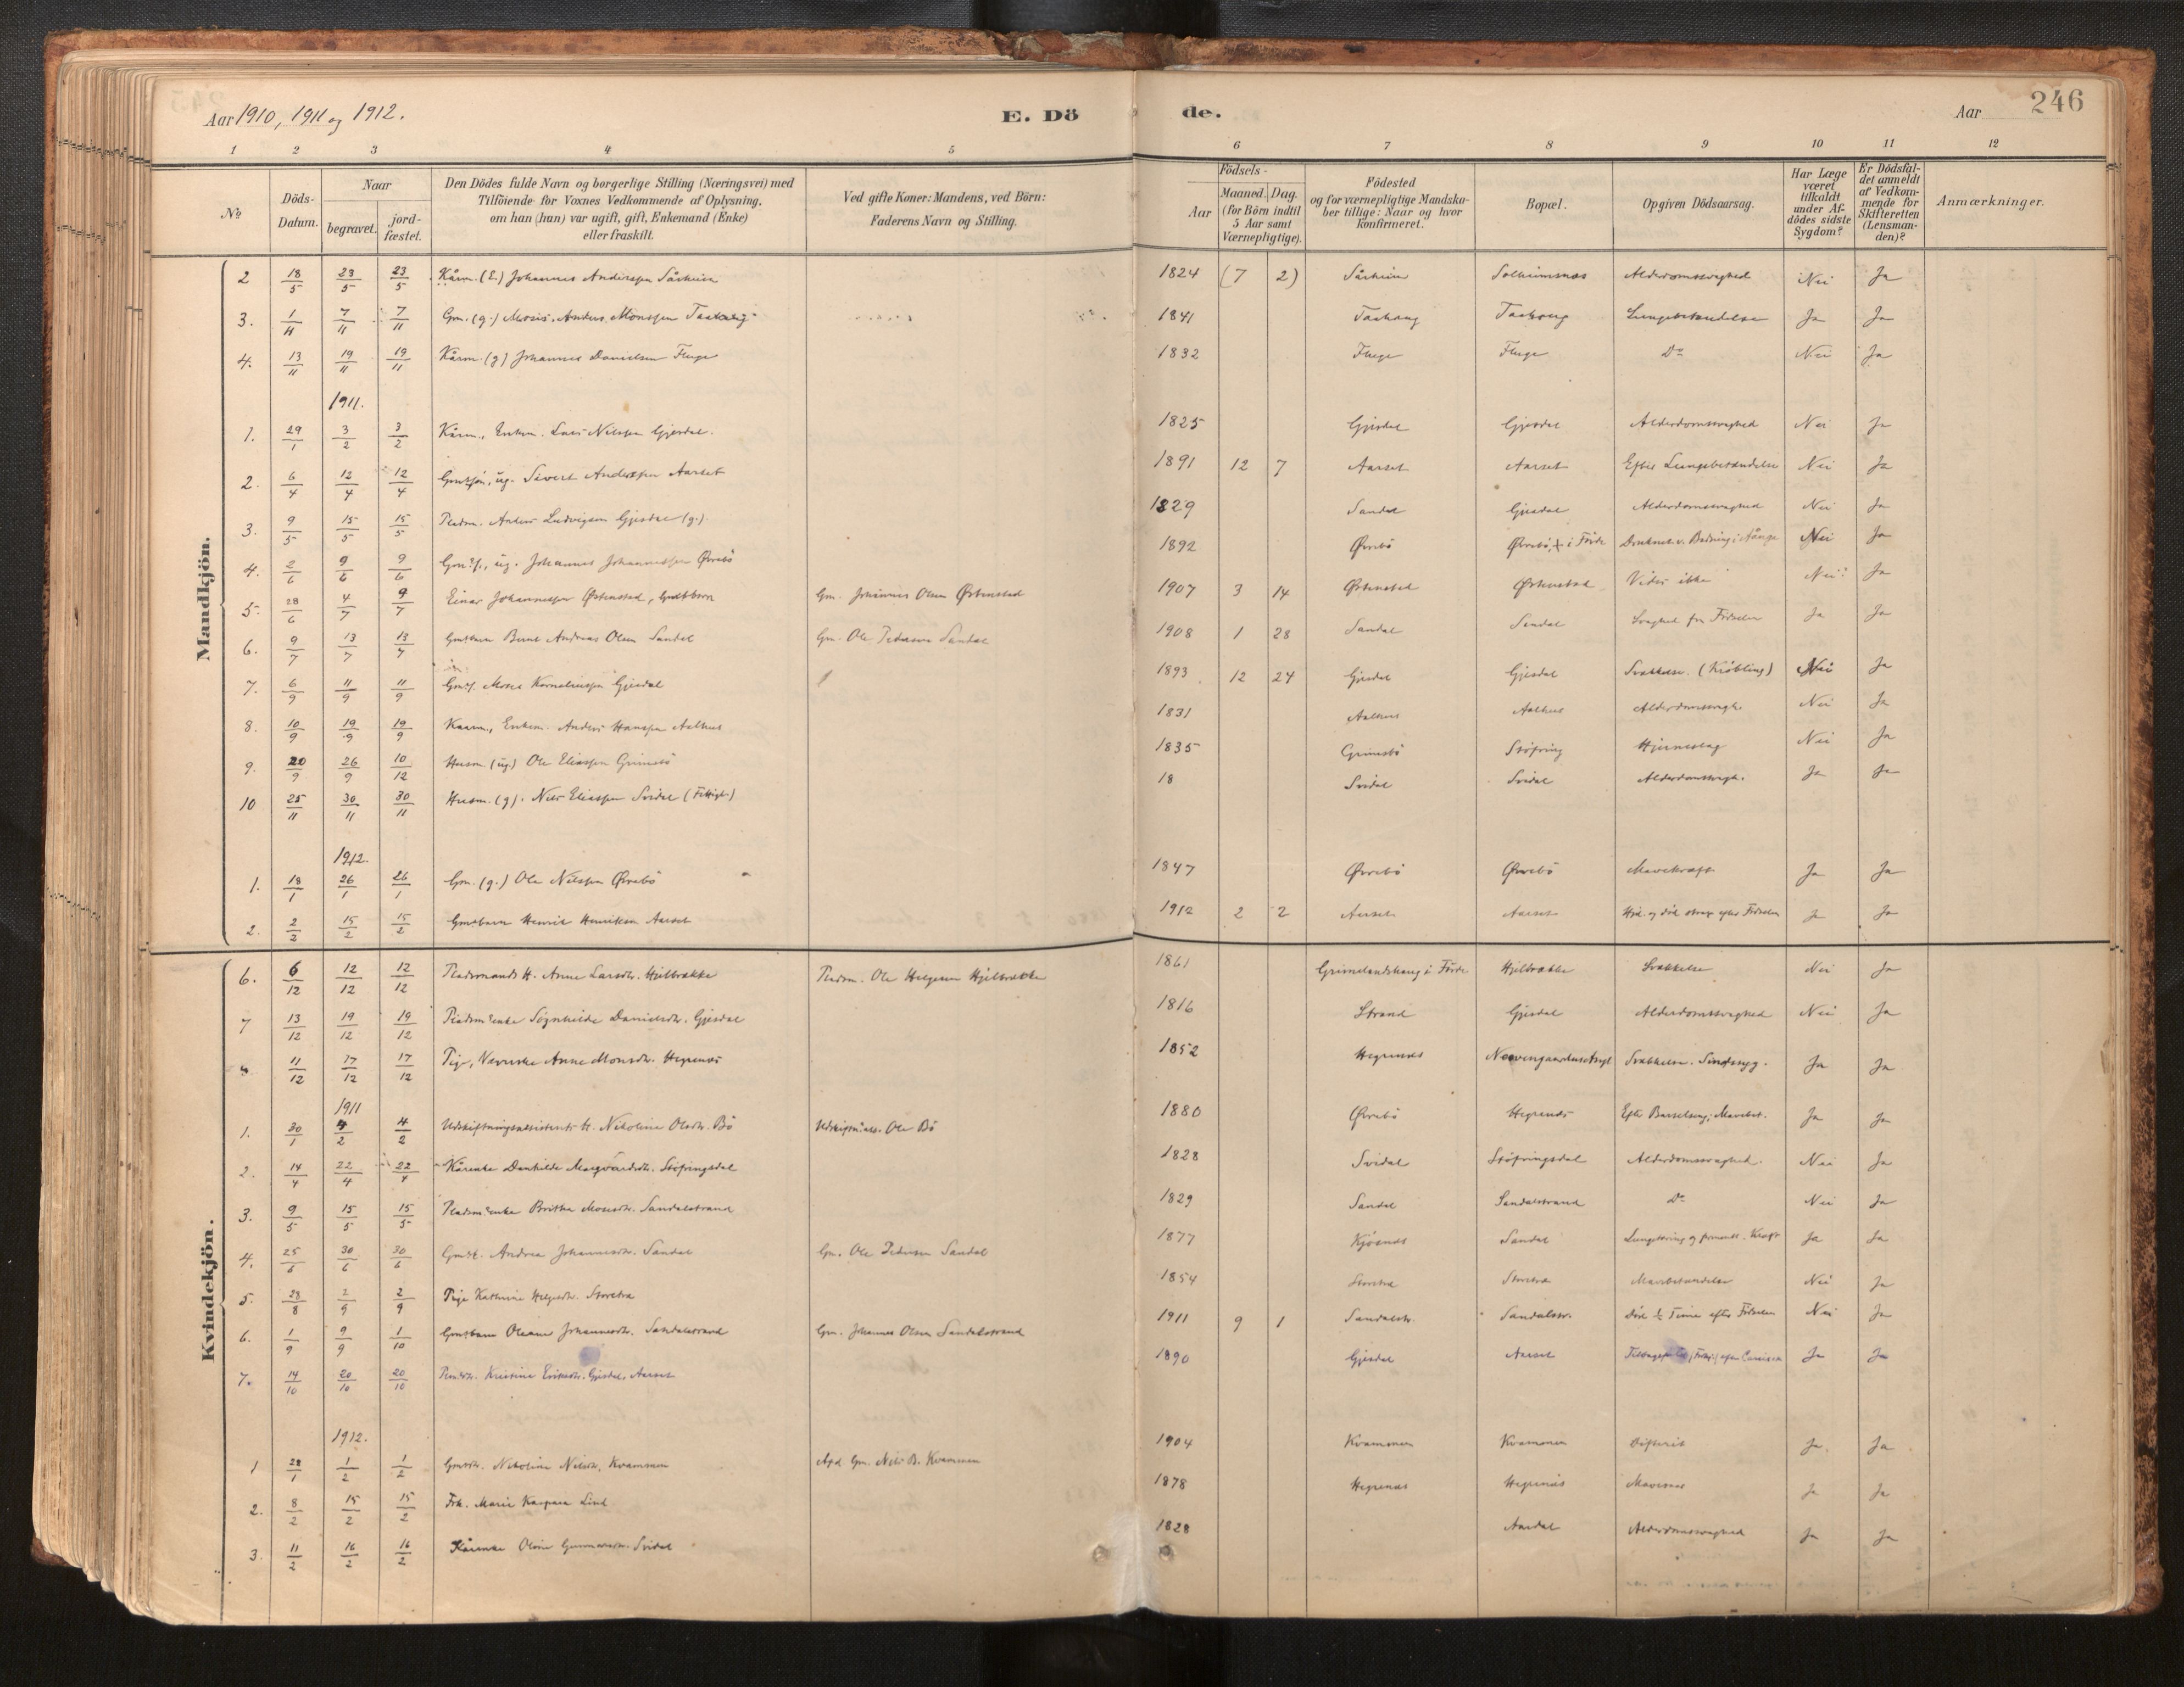 Aar 1910, 1911 og 1912.
E. Dö
de.
Aar
246
1 2 3 4 5 6 7 8 9 10 11 12
№
Döds-Datum.
Naar
begravet.
jord-fæstet.
Den Dödes fulde Navn og borgerlige Stilling (Næringsvei) med
Tilföiende for Voxnes Vedkommende af Oplysning,
om han (hun) var ugift, gift, Enkemand (Enke)
eller fraskilt.
Ved gifte Koner: Mandens, ved Börn:
Faderens Navn og Stilling.
Födsels-
Aar
Maaned. Dag.
(for Börn indtil
5 Aar samt
Værnepligtige).
Födested
og for værnepligtige Mandska-
ber tillige: Naar og hvor
konfirmeret.
Bopæl.
Opgiven Dödsaarsag.
Har Læge
været
tilkaldt
under Af-
dödes sidste
Sygdom?
Er Dödsfal-
det anmeldt
af Vedkom-
mende for
Skifteretten
(Lensman-
den)?
Anmærkninger.
Mandkjön.
2 18/5 23/5 23/5 Kårm. (E.) Johannes Anderssen Sårheim 1824 (7 2) Sårheim Solheimsnes Alderdomssvaghed Nei Ja
3. 1/11 7/11 7/11 Gm. (g.) Anders Monssen Taahaug 1841 Taahaug Taahaug Lungebetændelse Ja Ja
4. 13/11 19/11 19/11 Kårm. (g) Johannes Danielsen Fluge 1832 Fluge Fluge Do Nei Ja
1911.
1. 29/1 3/2 3/2 Kårm., Enkem. Lars Nilssen Gjesdal. 1825 Gjesdal Gjesdal Alderdomssvaghed Nei Ja
2. 6/4 12/4 12/4 Gmssön, ug. Sivert Anderssen Aarset 1891 12 7 Aarset Aarset Efter Lungebetændelse Nei Ja
3. 9/5 15/5 15/5 Pladsm. Anders Ludvigsen Gjesdal (g.) 1829 Sandal Gjesdal Alderdomssvaghed Nei Ja
4. 2/6 9/6 9/6 Gms., ug. Johannes Johannessen Øvrebö 1892 Øvrebö Øvrebö, i Förde Druknet v. Badning i Nei Ja
5. 28/6 4/7 9/7 Einar Johannessen Østenstad, Gmsbarn Gm. Johannes Olsen Østenstad 1907 3 14 Østenstad Østenstad Vides ikke Nei Ja
6. 9/7 13/7 13/7 Gmsbarn Bernt Andreas Olsen Sandal Gm. Ole Pedersen Sandal 1908 1 28 Sandal Sandal Svaghed fra Födselen Ja Ja
7. 6/9 11/9 11/9 Gms. Moses Korneliussen Gjesdal 1893 12 24 Gjesdal Gjesdal Svækkelse. (Kröbling) Nei Ja
8. 10/9 19/9 19/9 Kaarm., Enkem. Anders Hanssen Aalhus 1831 Aalhus Aalhus Alderdomssvagh. Nei Ja
9. 20/9 26/9 10/12 Husm (ug.) Ole Eliassen Grimsbö 1835 Grimsbö Stöfring Hjerneslag Nei Ja
10 25/11 30/11 30/11 Husm. (g). Nils Eliassen Svidal (Fattigl.) 18 Svidal Svidal Alderdomssvagh. Ja Ja
1912.
1. 18/1 26/1 26/1 Gm. (g.) Ole Nilssen Øvrebö 1847 Øvrebö Øvrebö Mavekræft Ja Ja
2. 2/2 15/2 15/2 Gmsbarn Henrik Henriksen Aarset 1912 2 2 Aarset Aarset Hjd. og död strax efter Födselen Ja Ja
Kvindekjön.
6. 6/12 12/12 12/12 Pladsmands H. Anne Larsdtr. Hjelbrække Pladsm. Ole Helgesen Hjelbrække 1861 Grimelandshaug i Förde Hjelbrække Svækkelse Nei Ja
7 13/12 19/12 19/12 Pladsmsenke Sögnhilde Danielsdtr. Gjesdal 1816 Strand Gjesdal Alderdomssvaghed Nei Ja
11/12 17/12 17/12 Pige, Næverske Anne Monsdtr. Hegrenæs 1852 Hegrenæs Neevengaardens Asyl Svækkelse. Sindssyg. Ja Ja
1911
1. 30/1 4/2 4/2 Udskiftningsassistents H. Nikoline Olsdtr. Bö Udskiftn.ass. Ole Bö 1880 Øvrebö Hegrenæs Efter Barselseng; Mavebet. Ja Ja
2. 14/4 22/4 22/4 Kårenke Dankilde Margvardsdtr. Stöfringsdal 1828 Svidal Stöfringsdal Alderdomssvaghed. Nei Ja
3. 9/5 15/5 15/5 Pladsmsenke Brithe Mosesdtr. Sandalstrand 1829 Sandal Sandalstrand Do Nei Ja
4. 25/6 30/6 30/6 Gmsk. Andrea Johannesdtr. Sandal Gm. Ole Pedersen Sandal 1877 Kjösnes Sandal Lungetæring og Ja Ja
5. 28/8 2/9 2/9 Pige Kathrine Helgesdtr. Storetræ 1854 Storetræ Storetræ Mavebetændelse Nei Ja
6. 1/9 9/9 1/10 Gmsbarn Oleane Johannesdtr. Sandalstrand Gm. Johannes Olsen Sandalstrand 1911 9 1 Sandalstr. Sandalstr. Död ½ Time efter Födselen Nei Ja
7. 14/10 20/10 20/10 Pladsdtr. Kristine Eriksdtr. Gjesdal, Aarset 1890 Gjesdal Aarset Ja Ja
1912.
1 28/1 1/2 1/2 Gmsdtr. Nikoline Nilsdtr. Kvammen Afd. Gm. Nils B. Kvammen 1904 Kvammen Kvammen Difterit Ja. Ja
2. 8/2 15/2 15/2 Frk. Marie Kaspara Lind 1878 Hegrenæs Hegrenæs Mavesaar Ja Ja
3. 11/2 16/2 16/2 Kårenke Oline Gunnarsdtr. Svidal 1828 Aardal Alderdomssvaghed Ja Ja